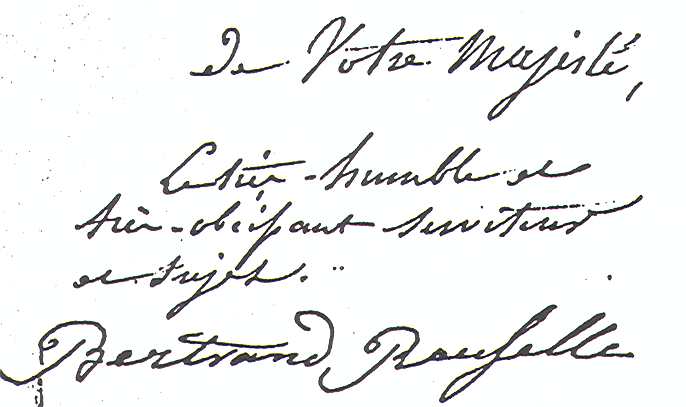 De Votre Majesté,
Le très-humble et
très-obéissant serviteur
et sujet.
Bertrand Rousselle